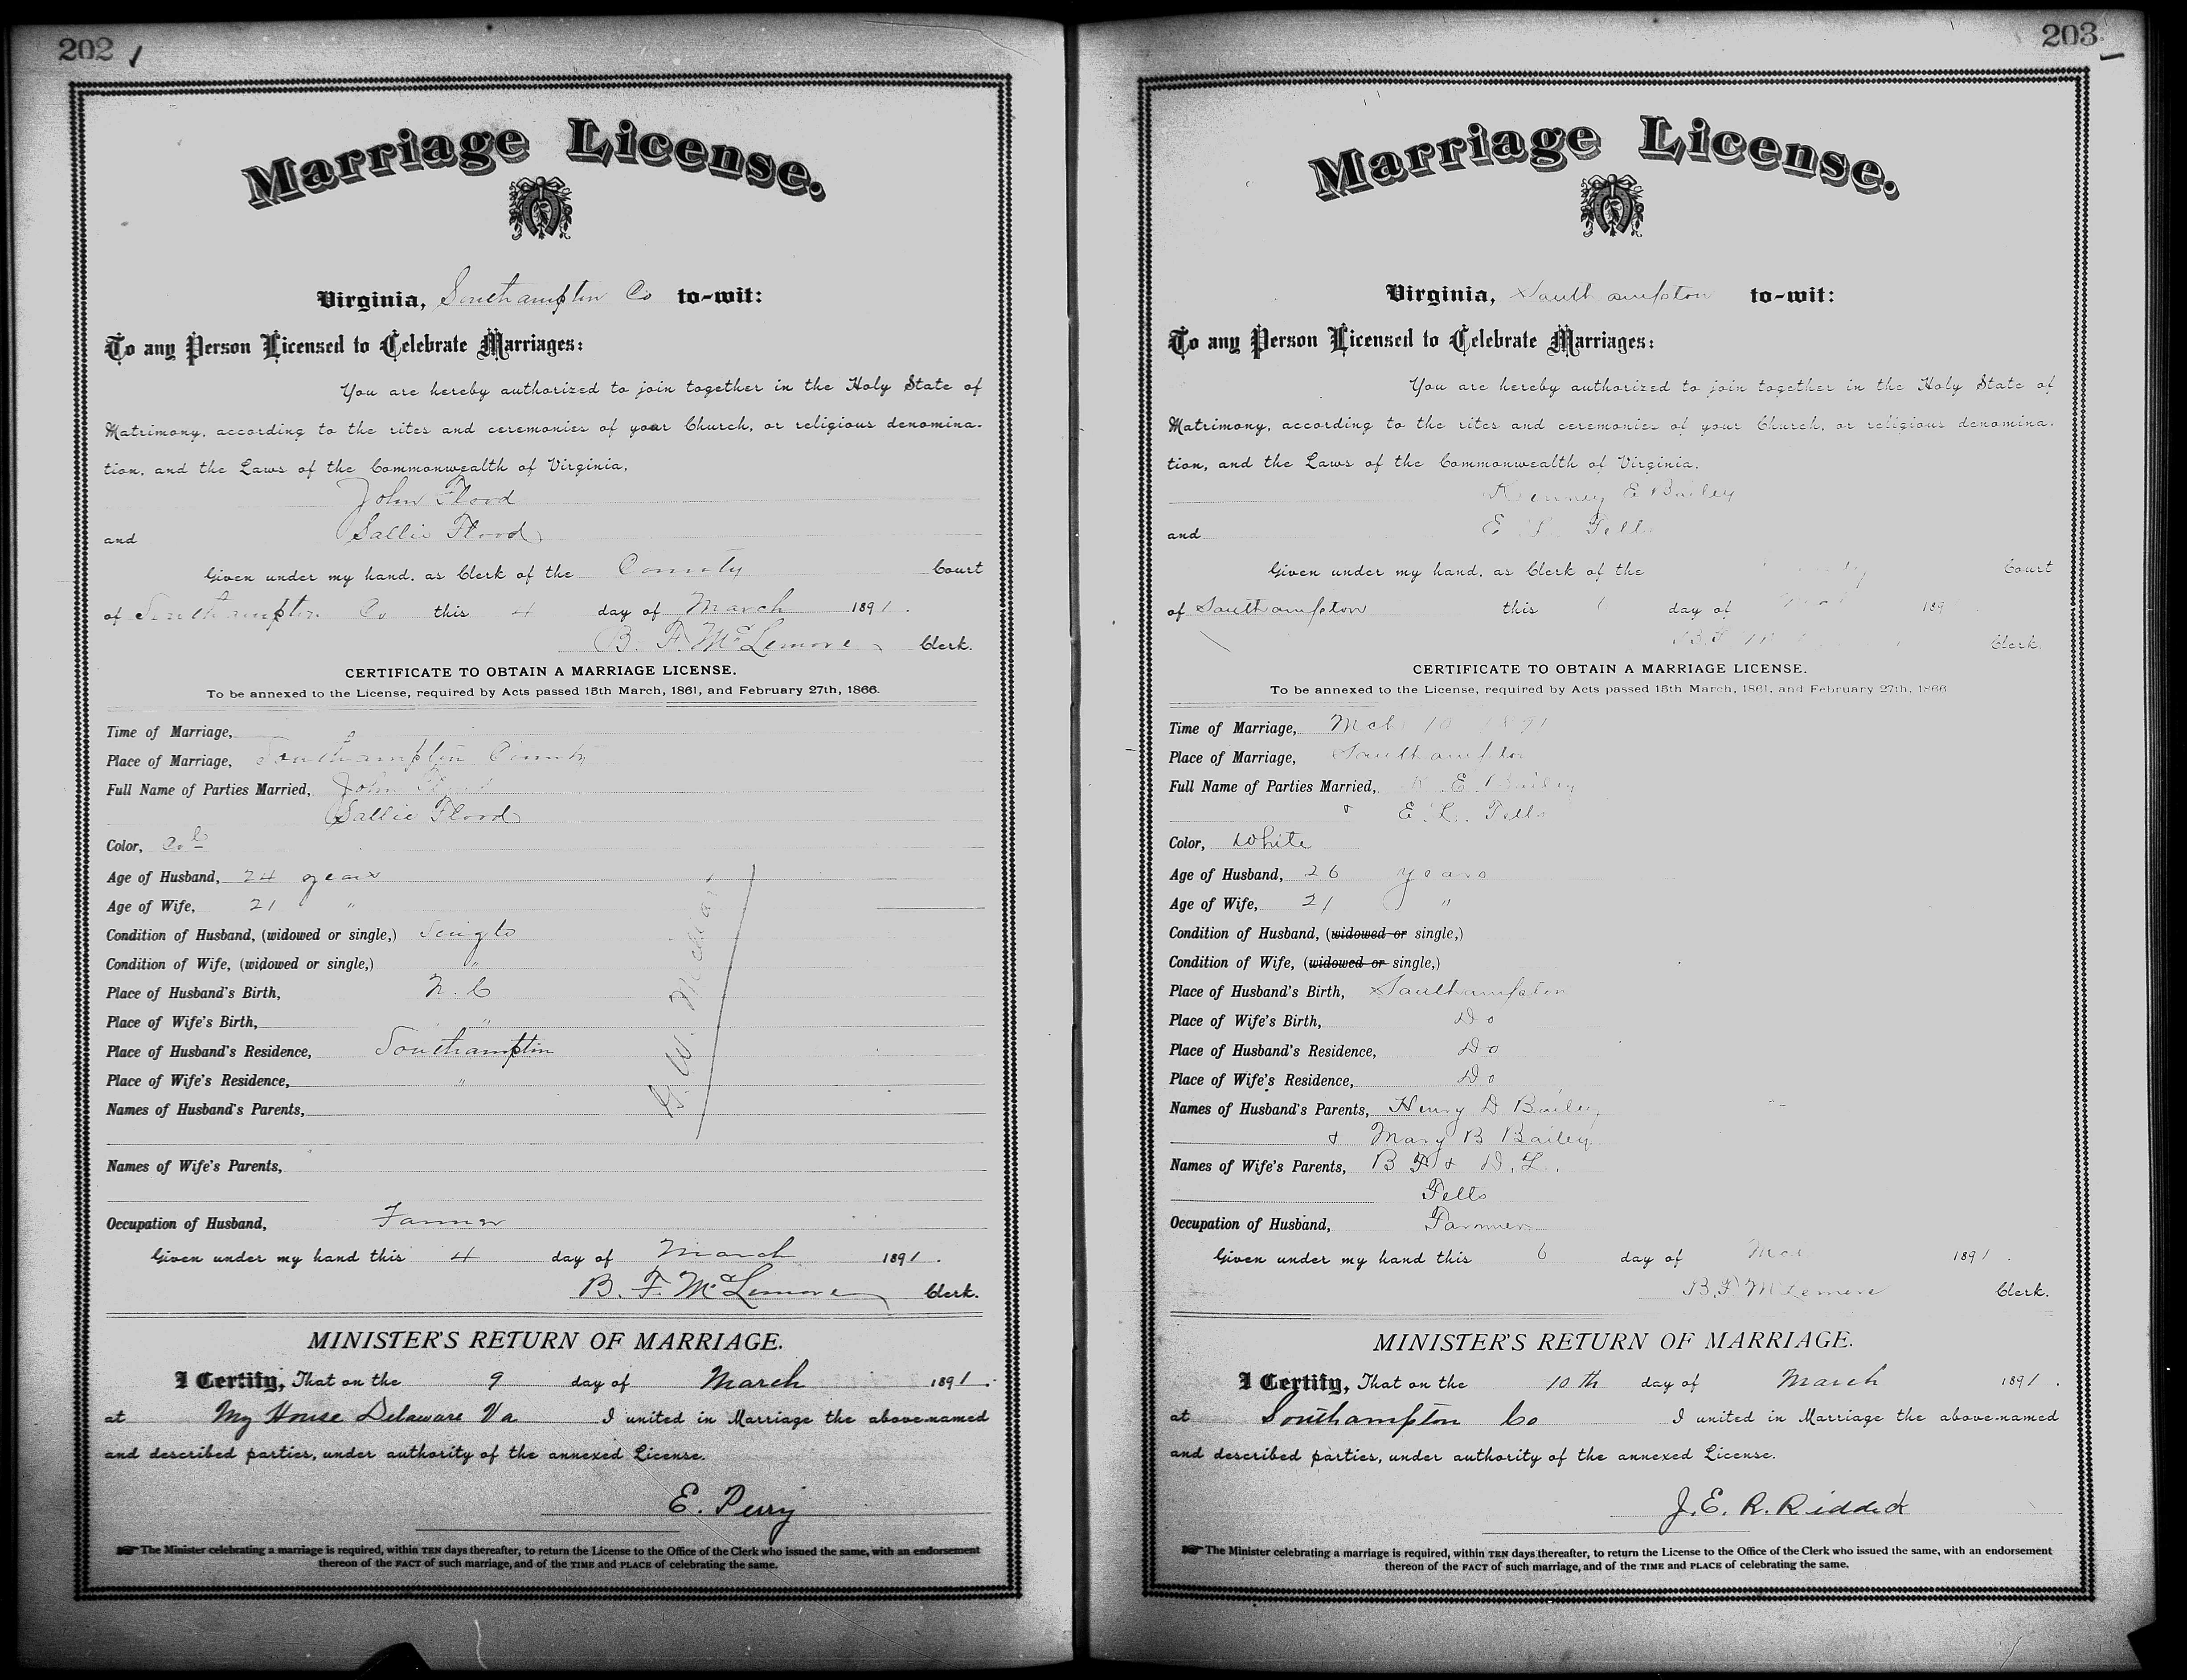 202
Marriage License.
Virginia, Southampton Co to-wit:
To any Person Licensed to Celebrate Marriages:
You are hereby authorized to join together in the Holy State of
Matrimony, according to the rites and ceremonies of your Church, or religious denomina-
tion, and the Laws of the Commonwealth of Virginia,
John Flood
and Sallie Flood
Given under my hand, as Clerk of the County Court
of Southampton Co this 4 day of March 1891.
B. F. McLemore Clerk.
CERTIFICATE TO OBTAIN A MARRIAGE LICENSE.
To be annexed to the License, required by Acts passed 15th March, 1861, and February 27th, 1866.
Time of Marriage,
Place of Marriage, Southampton County
Full Name of Parties Married, John Flood
Sallie Flood
Color, Col
Age of Husband, 24 years
Age of Wife, 21 "
Condition of Husband, (widowed or single,) Single
Condition of Wife, (widowed or single,) "
Place of Husband's Birth, N. C
Place of Wife's Birth, "
Place of Husband's Residence, Southampton
Place of Wife's Residence, "
Names of Husband's Parents,
Names of Wife's Parents,
Occupation of Husband, Farmer
Given under my hand this 4 day of March 1891.
B. F. McLemore Clerk.
MINISTER'S RETURN OF MARRIAGE.
I Certify, That on the 9 day of March 1891.
at My House Delaware Va I united in Marriage the above-named
and described parties, under authority of the annexed License.
E. Perry
The Minister celebrating a marriage is required, within TEN days thereafter, to return the License to the Office of the Clerk who issued the same, with an endorsement
thereon of the FACT of such marriage, and of the TIME and PLACE of celebrating the same.
203
Marriage License.
Virginia, Southampton to-wit:
To any Person Licensed to Celebrate Marriages:
You are hereby authorized to join together in the Holy State of
Matrimony, according to the rites and ceremonies of your Church, or religious denomina-
tion, and the Laws of the Commonwealth of Virginia,
Kenney E Bailey
and E L Fells
Given under my hand, as Clerk of the Court
of Southampton this day of 189
B. F. Clerk.
CERTIFICATE TO OBTAIN A MARRIAGE LICENSE.
To be annexed to the License, required by Acts passed 15th March, 1861, and February 27th, 1866
Time of Marriage, Mch 10 1891
Place of Marriage, Southampton
Full Name of Parties Married, K. E. Bailey
& E. L. Fells
Color, White
Age of Husband, 26 years
Age of Wife, 21 "
Condition of Husband, (widowed or single,)
Condition of Wife, (widowed or single,)
Place of Husband's Birth, Southampton
Place of Wife's Birth, Do
Place of Husband's Residence, Do
Place of Wife's Residence, Do
Names of Husband's Parents, Henry D Bailey
& Mary B Bailey
Names of Wife's Parents, B F & D. L.
Fells
Occupation of Husband, Farmer
Given under my hand this 6 day of Mch 1891.
B. F. McLemore Clerk.
MINISTER'S RETURN OF MARRIAGE.
I Certify, That on the 10th day of March 1891.
at Southampton Co I united in Marriage the above-named
and described parties, under authority of the annexed License.
J. E. R. Riddick
The Minister celebrating a marriage is required, within TEN days thereafter, to return the License to the Office of the Clerk who issued the same, with an endorsement
thereon of the FACT of such marriage, and of the TIME and PLACE of celebrating the same.